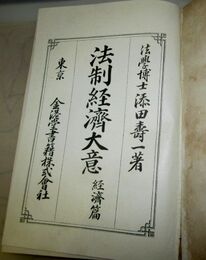 法學博士添田壽一著
法制經濟大意 經濟篇
東京 金港堂書籍株式會社